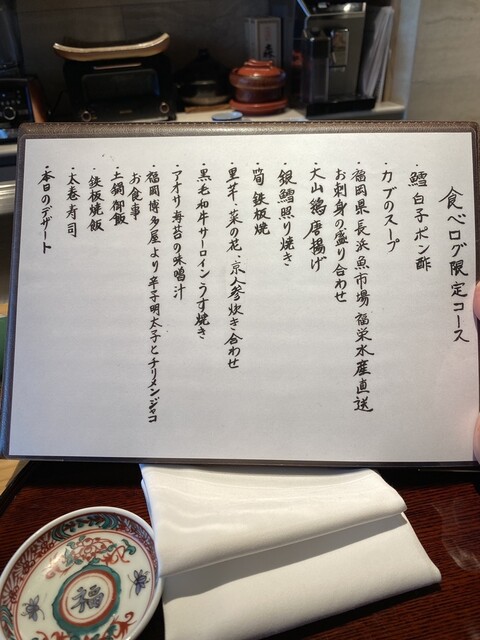 食べログ限定コース
・鱈白子ポン酢
・カブのスープ
・福岡県長浜魚市場 福栄水産直送
お刺身の盛り合わせ
・大山鶏唐揚げ
・銀鱈照り焼き
・筍鉄板焼
・里芋・菜の花・京人参炊き合わせ
・黒毛和牛サーロインうす焼き
・アオサ海苔の味噌汁
・福岡博多屋より辛子明太子とチリメンジャコ
お食事
土鍋御飯
・鉄板焼飯
・太巻寿司
・本日のデザート
福